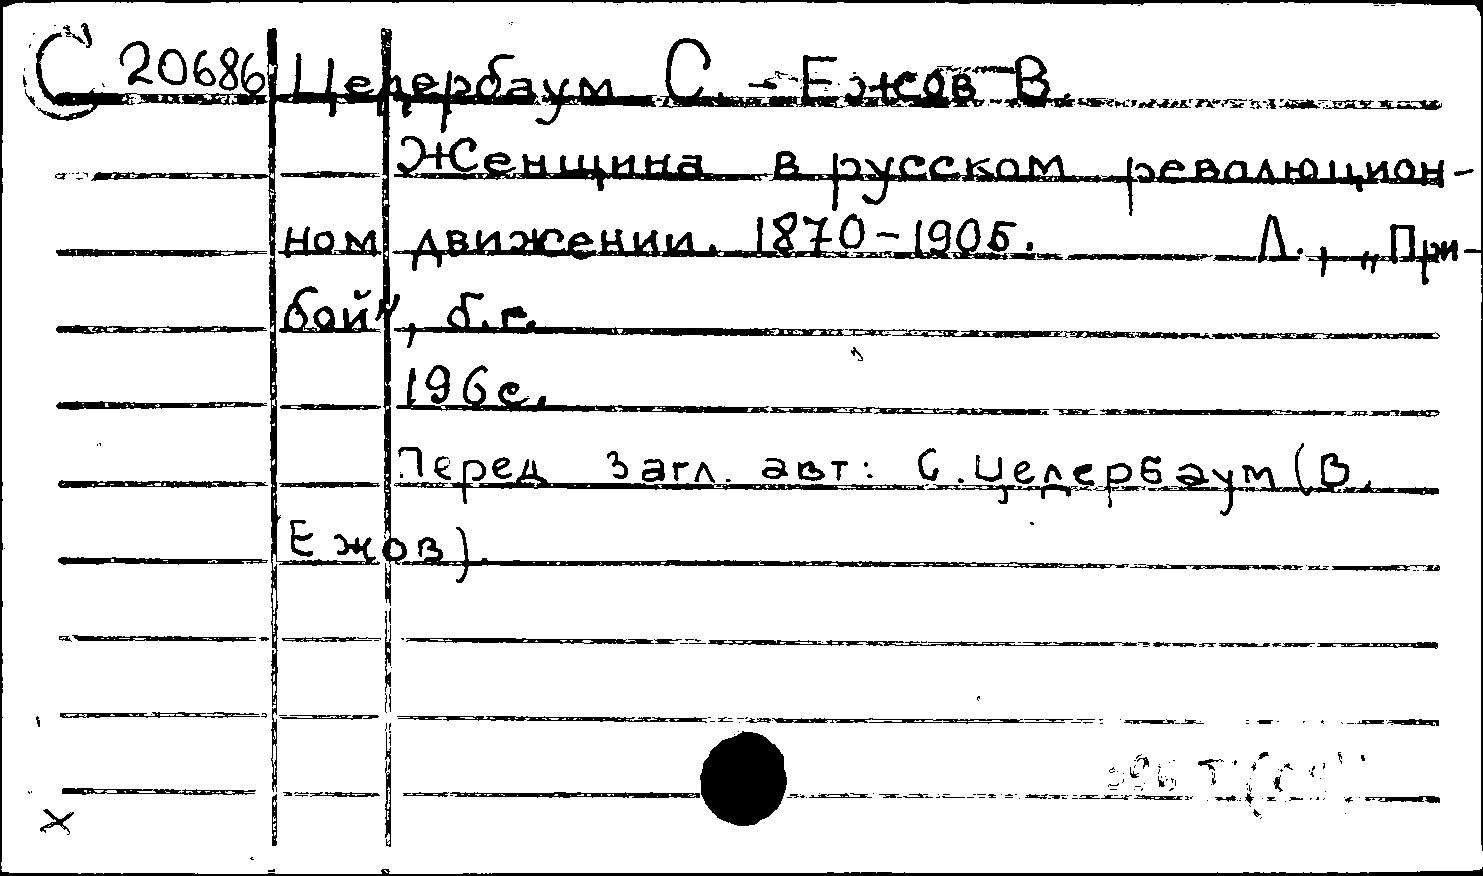 С 20686 Цедербаум С. - Ежов В.
Женщина в русском революцион-
ном движении. 1870-1905. Л., „При-
бой", б.г.
196с.
Перед загл. авт: С. Цедербаум (В.
Ежов).
x